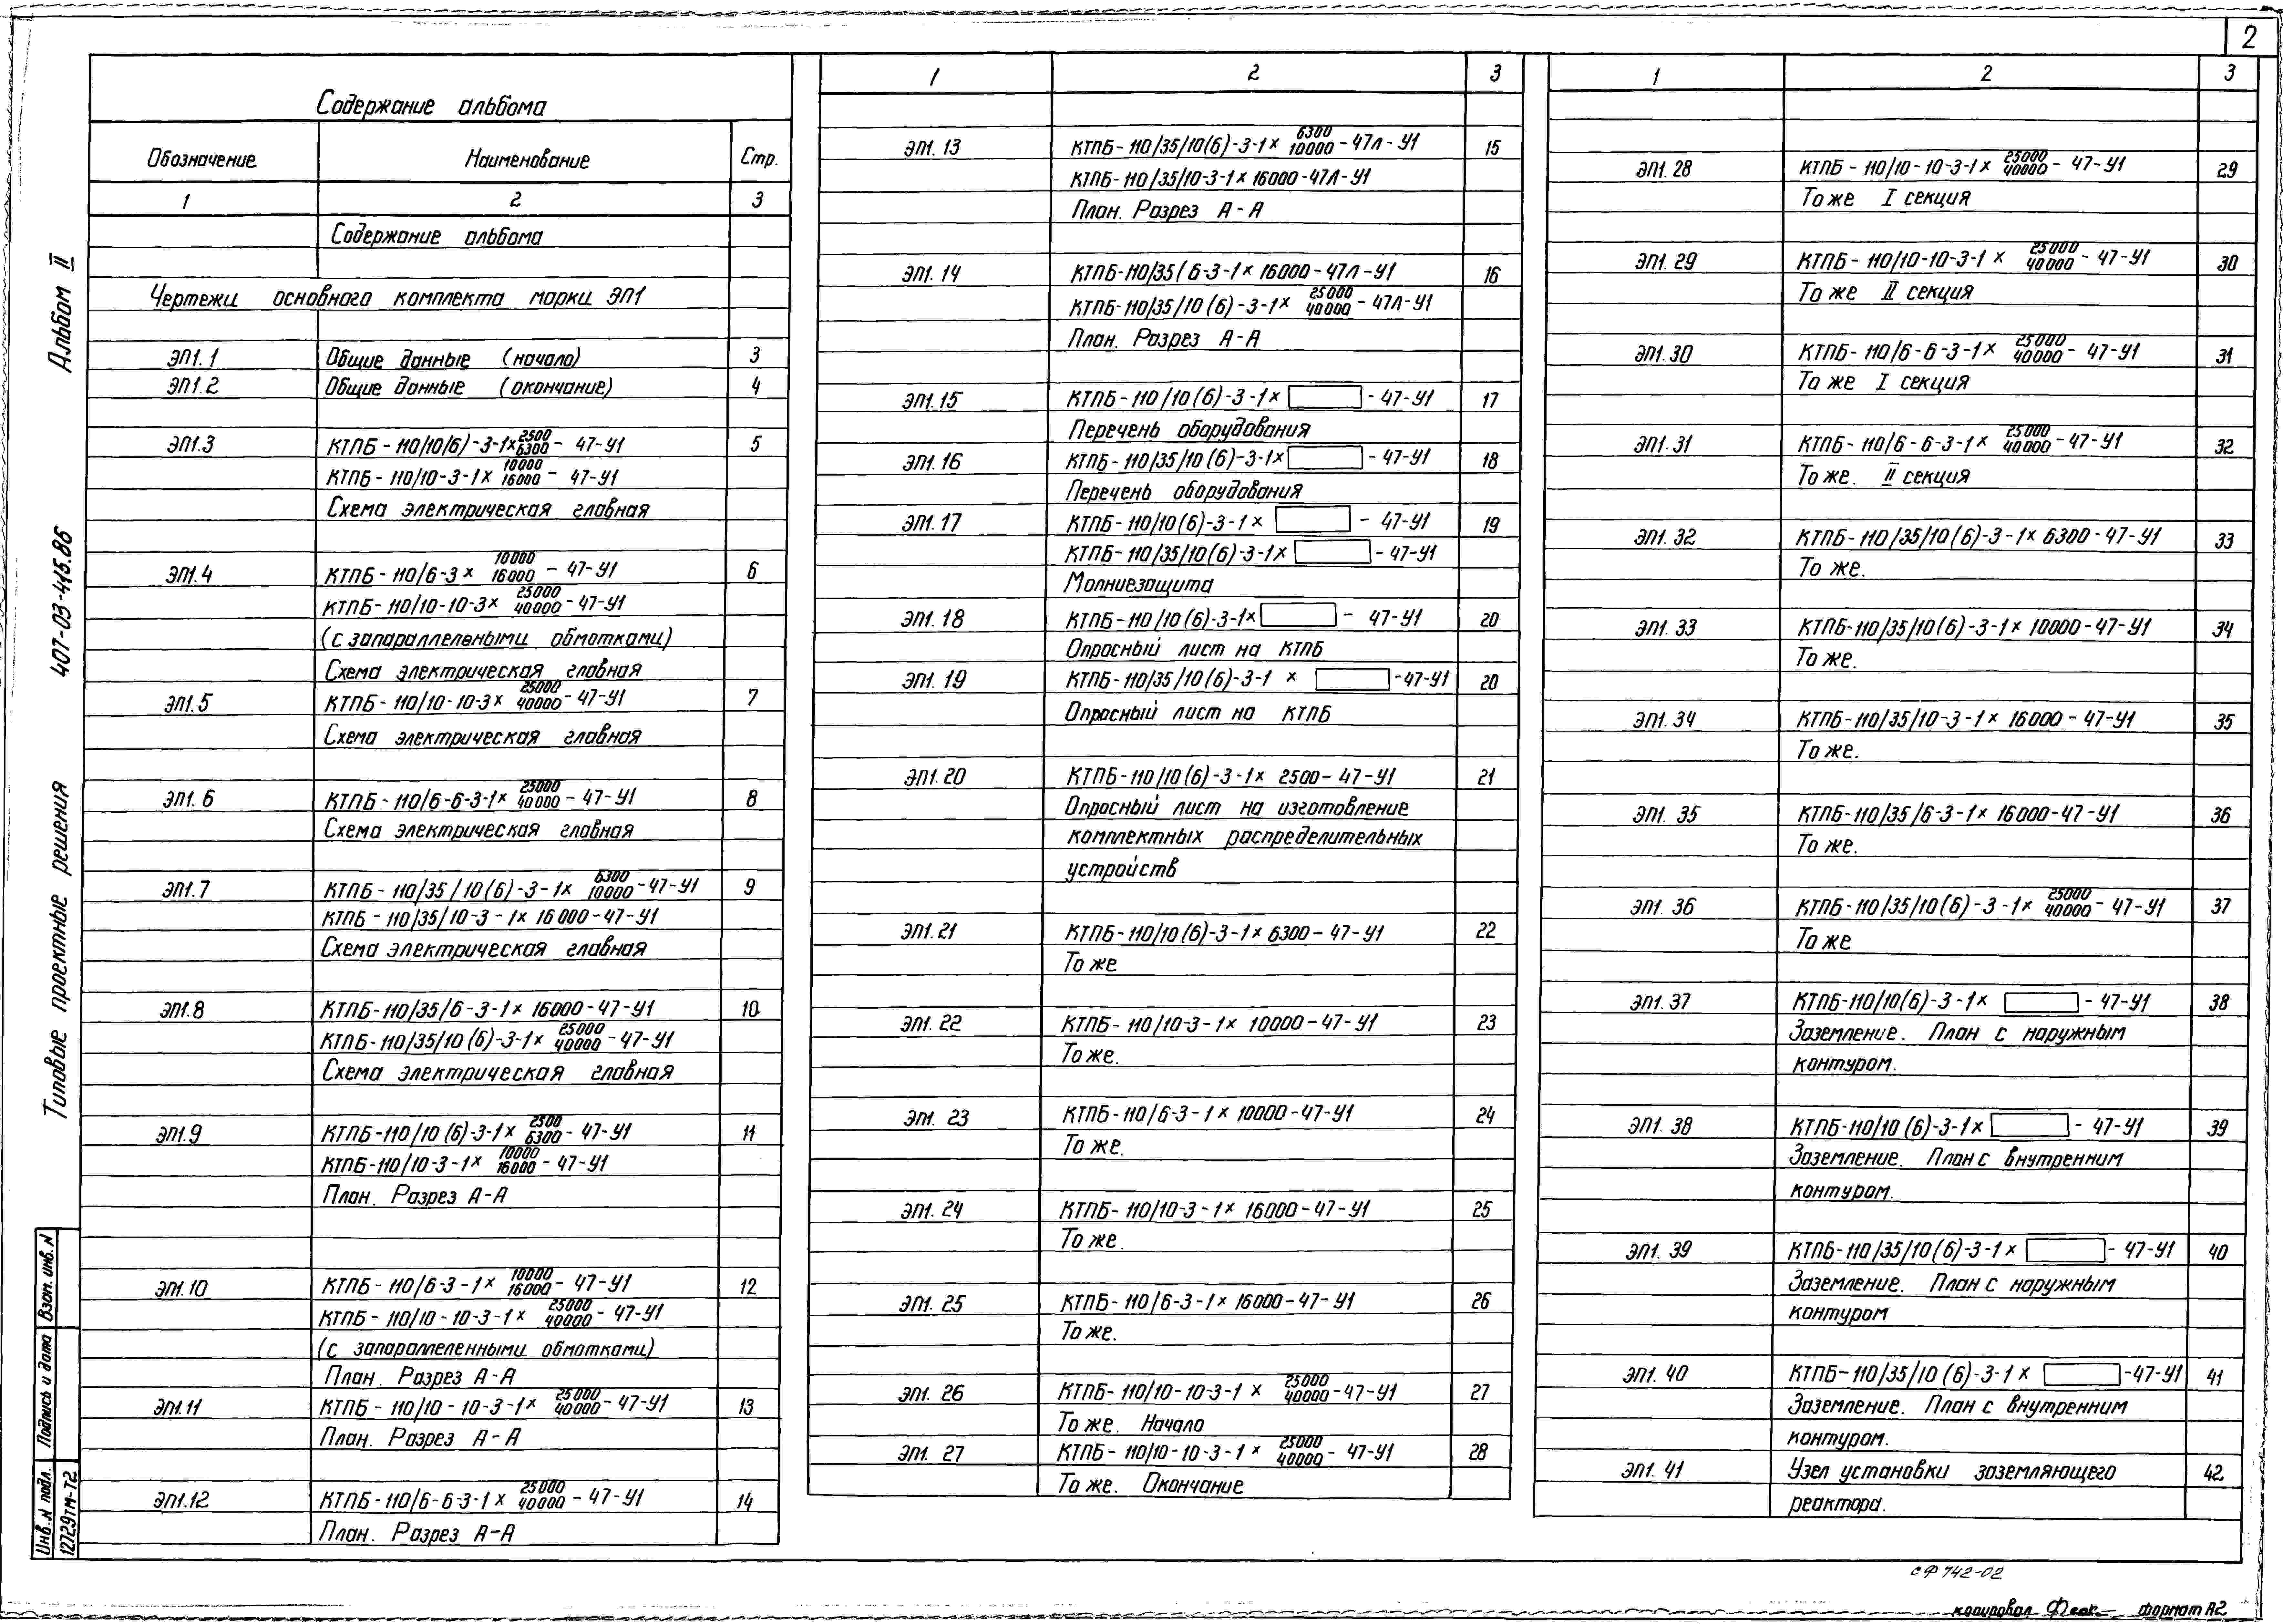 2
Альбом II
407-03-415.86
Типовые проектные решения
Взам. инв. N
Подпись и дата
Инв. N подл.
12729тм-Т2
Содержание альбома
Обозначение Наименование Стр.
1 2 3
Содержание альбома
Чертежи основного комплекта марки ЭП1
ЭП1.1 Общие данные (начало) 3
ЭП1.2 Общие данные (окончание) 4
ЭП1.3 КТПБ-110/10/6)-3-1×2500/6300-47-У1 5
КТПБ-110/10-3-1×10000/16000-47-У1
Схема электрическая главная
ЭП1.4 КТПБ-110/6-3×10000/16000-47-У1 6
КТПБ-110/10-10-3×25000/40000-47-У1
(с запараллельными обмотками)
Схема электрическая главная
ЭП1.5 КТПБ-110/10-10-3×25000/40000-47-У1 7
Схема электрическая главная
ЭП1.6 КТПБ-110/6-6-3-1×25000/40000-47-У1 8
Схема электрическая главная
ЭП1.7 КТПБ-110/35/10(6)-3-1×6300/10000-47-У1 9
КТПБ-110/35/10-3-1×16000-47-У1
Схема электрическая главная
ЭП1.8 КТПБ-110/35/6-3-1×16000-47-У1 10
КТПБ-110/35/10(6)-3-1×25000/40000-47-У1
Схема электрическая главная
ЭП1.9 КТПБ-110/10(6)-3-1×2500/6300-47-У1 11
КТПБ-110/10-3-1×10000/16000-47-У1
План. Разрез А-А
ЭП1.10 КТПБ-110/6-3-1×10000/16000-47-У1 12
КТПБ-110/10-10-3-1×25000/40000-47-У1
(с запараллеленными обмотками)
План. Разрез А-А
ЭП1.11 КТПБ-110/10-10-3-1×25000/40000-47-У1 13
План. Разрез А-А
ЭП1.12 КТПБ-110/6-6-3-1×25000/40000-47-У1 14
План. Разрез А-А
1 2 3
ЭП1.13 КТПБ-110/35/10(6)-3-1×6300/10000-47Л-У1 15
КТПБ-110/35/10-3-1×16000-47Л-У1
План. Разрез А-А
ЭП1.14 КТПБ-110/35(6-3-1×16000-47Л-У1 16
КТПБ-110/35/10(6)-3-1×25000/40000-47Л-У1
План. Разрез А-А
ЭП1.15 КТПБ-110/10(6)-3-1× -47-У1 17
Перечень оборудования
ЭП1.16 КТПБ-110/35/10(6)-3-1× -47-У1 18
Перечень оборудования
ЭП1.17 КТПБ-110/10(6)-3-1× -47-У1 19
КТПБ-110/35/10(6)-3-1× -47-У1
Молниезащита
ЭП1.18 КТПБ-110/10(6)-3-1× -47-У1 20
Опросный лист на КТПБ
ЭП1.19 КТПБ-110/35/10(6)-3-1× -47-У1 20
Опросный лист на КТПБ
ЭП1.20 КТПБ-110/10(6)-3-1×2500-47-У1 21
Опросный лист на изготовление
комплектных распределительных
устройств
ЭП1.21 КТПБ-110/10(6)-3-1×6300-47-У1 22
То же
ЭП1.22 КТПБ-110/10-3-1×10000-47-У1 23
То же.
ЭП1.23 КТПБ-110/6-3-1×10000-47-У1 24
То же.
ЭП1.24 КТПБ-110/10-3-1×16000-47-У1 25
То же.
ЭП1.25 КТПБ-110/6-3-1×16000-47-У1 26
То же.
ЭП1.26 КТПБ-110/10-10-3-1×25000/40000-47-У1 27
То же. Начало
ЭП1.27 КТПБ-110/10-10-3-1×25000/40000-47-У1 28
То же. Окончание
1 2 3
ЭП1.28 КТПБ-110/10-10-3-1×25000/40000-47-У1 29
То же I секция
ЭП1.29 КТПБ-110/10-10-3-1×25000/40000-47-У1 30
То же II секция
ЭП1.30 КТПБ-110/6-6-3-1×25000/40000-47-У1 31
То же I секция
ЭП1.31 КТПБ-110/6-6-3-1×25000/40000-47-У1 32
То же. II секция
ЭП1.32 КТПБ-110/35/10(6)-3-1×6300-47-У1 33
То же.
ЭП1.33 КТПБ-110/35/10(6)-3-1×10000-47-У1 34
То же.
ЭП1.34 КТПБ-110/35/10-3-1×16000-47-У1 35
То же.
ЭП1.35 КТПБ-110/35/6-3-1×16000-47-У1 36
То же.
ЭП1.36 КТПБ-110/35/10(6)-3-1×25000/40000-47-У1 37
То же
ЭП1.37 КТПБ-110/10(6)-3-1× -47-У1 38
Заземление. План с наружным
контуром.
ЭП1.38 КТПБ-110/10(6)-3-1× -47-У1 39
Заземление. План с внутренним
контуром.
ЭП1.39 КТПБ-110/35/10(6)-3-1× -47-У1 40
Заземление. План с наружным
контуром
ЭП1.40 КТПБ-110/35/10(6)-3-1× -47-У1 41
Заземление. План с внутренним
контуром.
ЭП1.41 Узел установки заземляющего 42
реактора.
сф 742-02
копировал формат А2